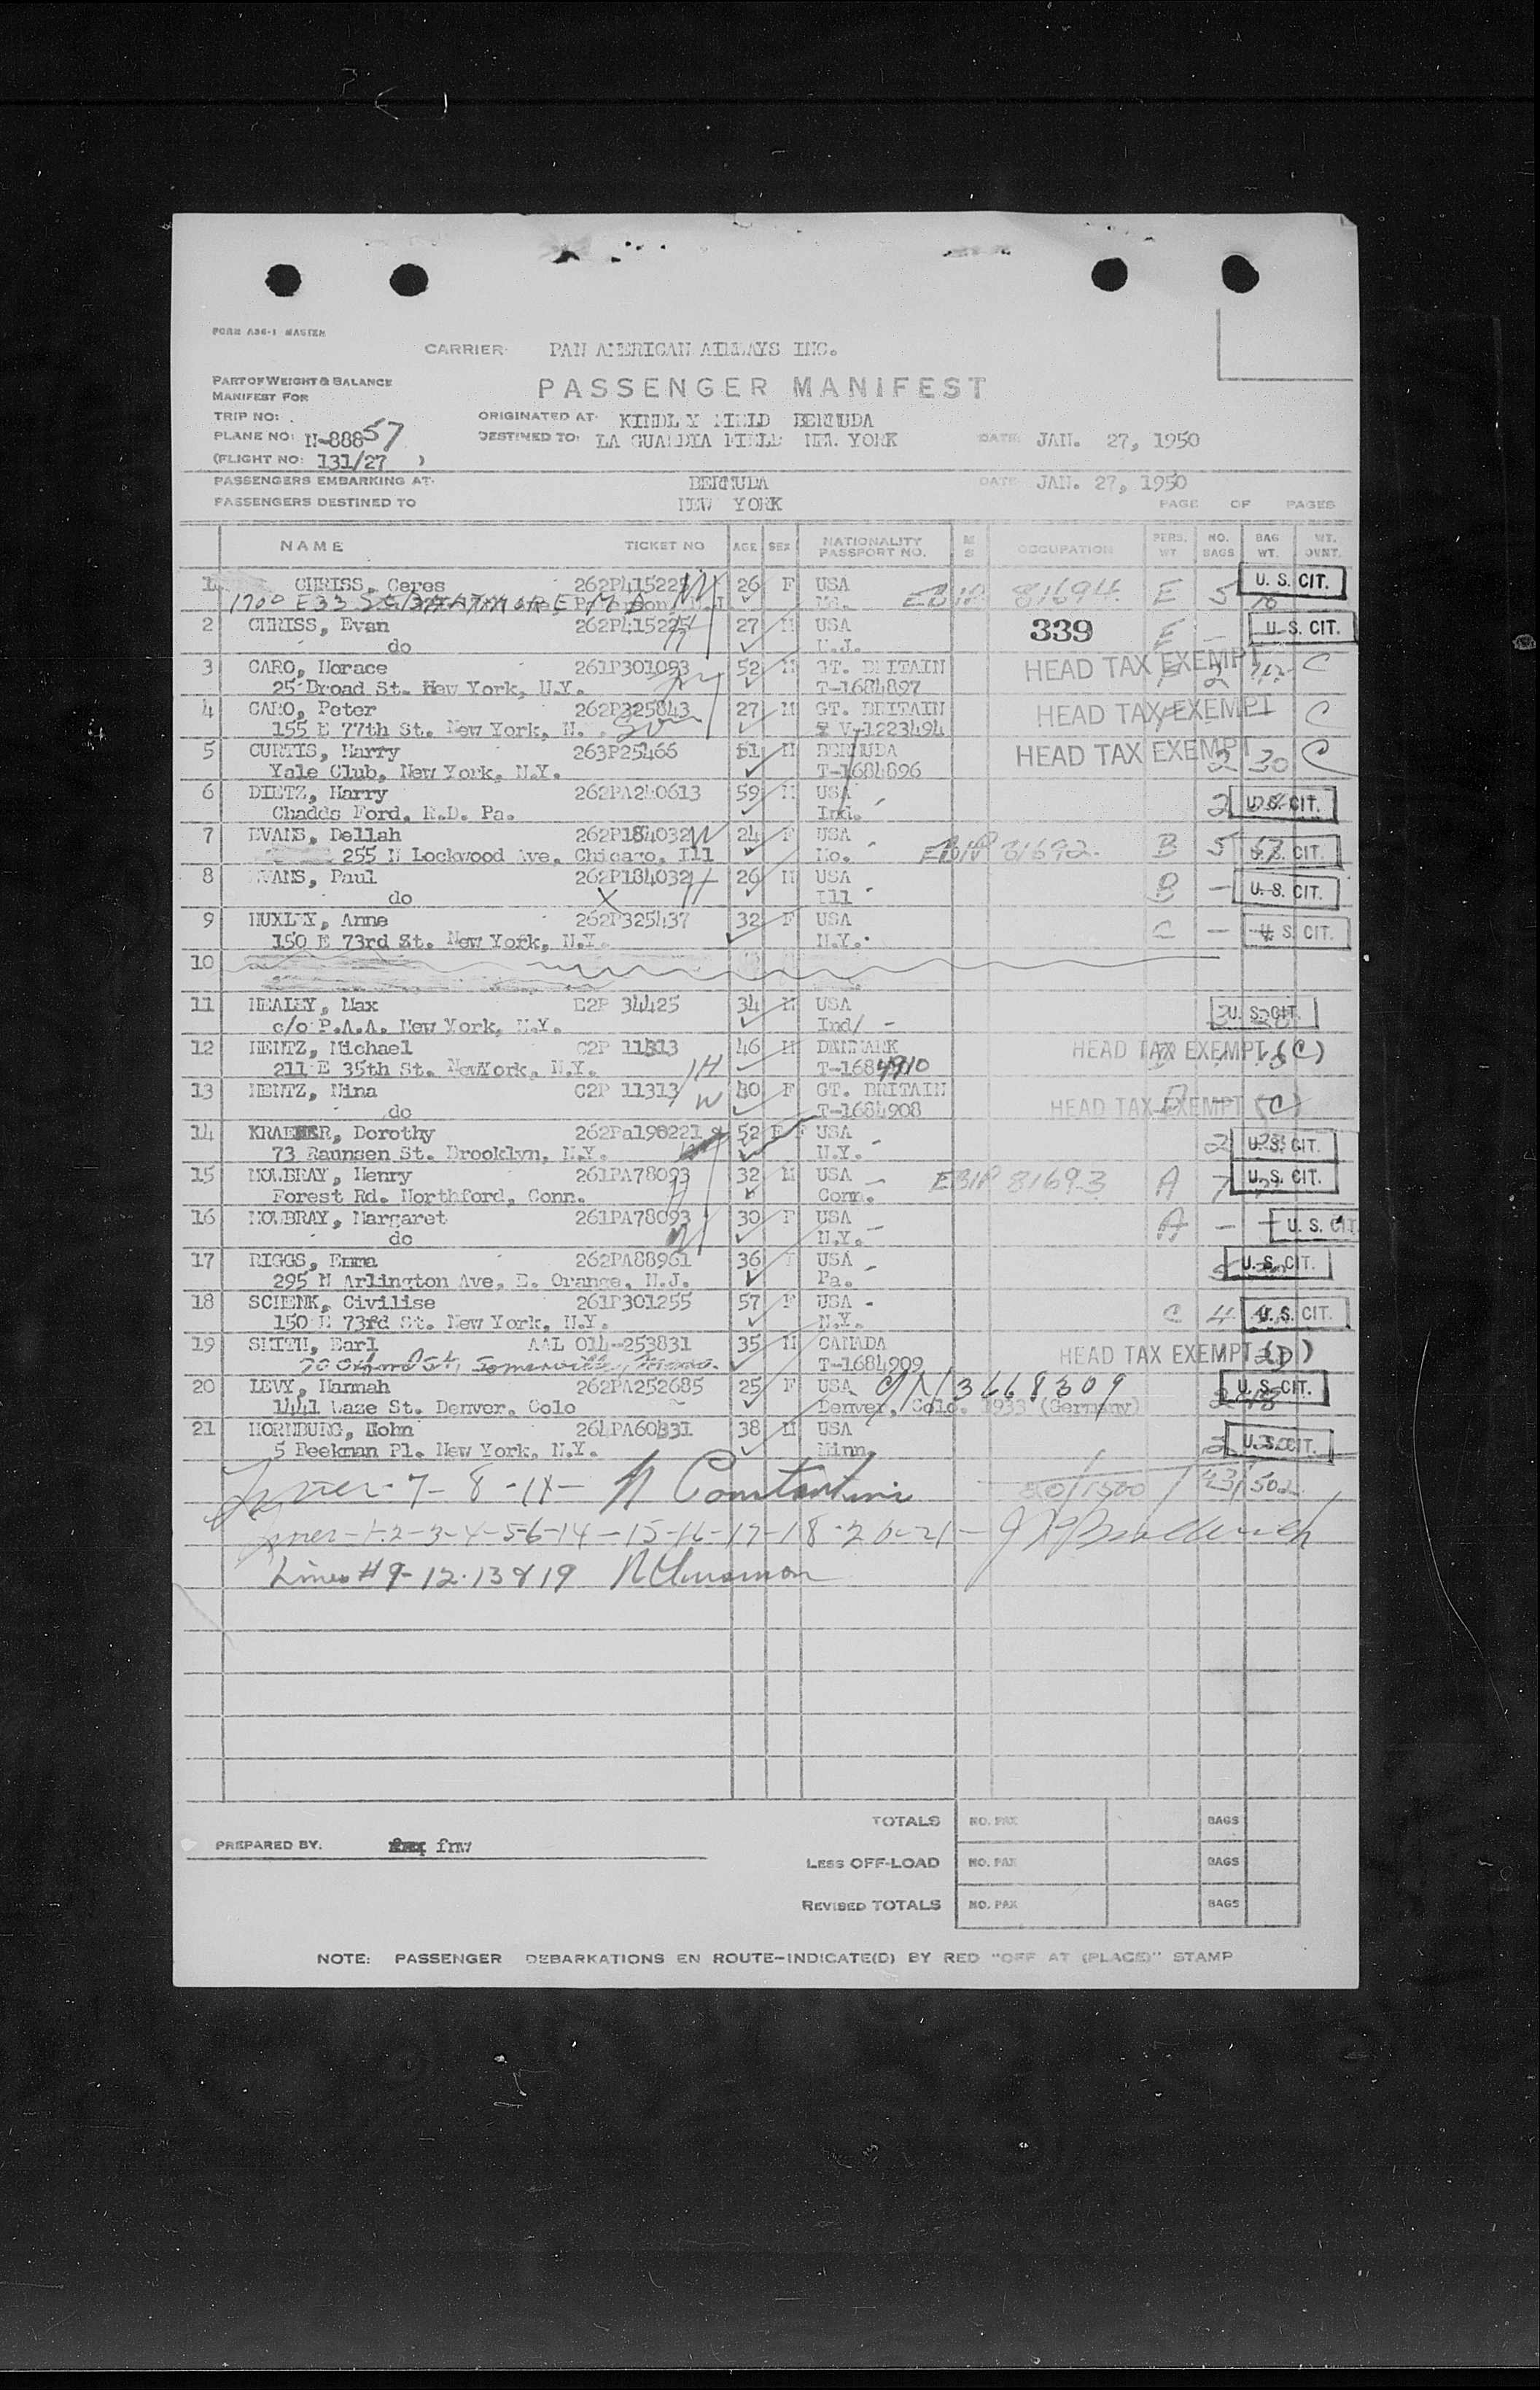 FORM A36-1 MASTER
CARRIER: PAN AMERICAN AIRWAYS INC.
PART OF WEIGHT & BALANCE
MANIFEST FOR
PASSENGER MANIFEST
TRIP NO:
ORIGINATED AT: KINDLEY FIELD BERMUDA
PLANE NO: N-88857
DESTINED TO: LA GUARDIA FIELD NEW YORK DATE: JAN. 27, 1950
(FLIGHT NO: 131/27 )
PASSENGERS EMBARKING AT: BERMUDA DATE JAN. 27, 1950
PASSENGERS DESTINED TO NEW YORK PAGE OF PAGES
NAME TICKET NO AGE SEX NATIONALITY PASSPORT NO. M S OCCUPATION PERS. WT. NO. BAGS BAG WT. WT. OVNT.
1 CHRISS, Ceres 262P415225 W 26 F USA EBIP 81694 E 5 U. S. CIT.
1700 E 33 St BALTIMORE MD Md.
2 CHRISS, Evan 262P415225 H 27 M USA 339 E - U. S. CIT.
do N.J.
3 CARO, Horace 261P301093 52 M GT. BRITAIN HEAD TAX EXEMPT 2 C
25 Broad St. New York, N.Y. T-1684897
4 CARO, Peter 262P325843 27 M GT. BRITAIN HEAD TAX EXEMPT C
155 E 77th St. New York, N. . V-1223494
5 CURTIS, Harry 263P25466 51 M BERMUDA HEAD TAX EXEMPT 2 30 C
Yale Club, New York, N.Y. T-1684896
6 DIETZ, Harry 262PA240613 59 M USA 2 U.S. CIT.
Chadds Ford, R.D. Pa. Ind.
7 EVANS, Dellah 262P184032 W 24 F USA EBIP 81692 B 5 U.S. CIT.
255 N Lockwood Ave, Chicago, Ill Mo.
8 EVANS, Paul 262P184032 H 26 M USA B - U. S. CIT.
do X Ill
9 HUXLEY, Anne 262P325437 32 F USA C - U. S. CIT.
150 E 73rd St. New York, N.Y. N.Y.
10
11 HEALEY, Max E2P 34425 34 M USA U. S. CIT.
c/o P.A.A. New York, N.Y. Ind/
12 HENTZ, Michael C2P 11313 46 M DENMARK HEAD TAX EXEMPT (C)
211 E 35th St. NewYork, N.Y. H T-1684910
13 HENTZ, Nina C2P 11313 W 40 F GT. BRITAIN HEAD TAX EXEMPT (C)
do T-1684908
14 KRAEMER, Dorothy 262Pa190221 52 F USA 2 U.S. CIT.
73 Raunsen St. Brooklyn, N.Y. N.Y.
15 MOWBRAY, Henry 261PA78093 H 32 M USA EBIP 81693 A 7 U.S. CIT.
Forest Rd. Northford, Conn. Conn.
16 MOWBRAY, Margaret 261PA78093 W 30 F USA A - - U. S. CIT
do N.Y.
17 RIGGS, Emma 262PA88961 36 F USA U.S. CIT.
295 N Arlington Ave, E. Orange, N.J. Pa.
18 SCHENK, Civilise 261P301255 57 F USA C 4 U.S. CIT.
150 E 73rd St. New York, N.Y. N.Y.
19 SMITH, Earl AAL 014-253831 35 M CANADA HEAD TAX EXEMPT (D)
70 Oxford St, Somerville, Mass. T-1684909
20 LEVY, Hannah 262PA252685 25 F USA C/N 3668309 U.S. CIT.
1441 Waze St. Denver, Colo Denver, Colo. 1933 (Germany)
21 HORNBURG, John 264PA60831 38 M USA 2 U.S. CIT.
5 Beekman Pl. New York, N.Y. Minn.
Lines - 7 - 8 - 11 - N Constantine 20/1500 43 502
Lines - 1-2-3-4-5-6-14-15-16-17-18-20-21-
Lines # 9-12-13 & 19
TOTALS NO. PAX BAGS
PREPARED BY: frw
LESS OFF-LOAD NO. PAX BAGS
REVISED TOTALS NO. PAX BAGS
NOTE: PASSENGER DEBARKATIONS EN ROUTE-INDICATE(D) BY RED "OFF AT (PLACE)" STAMP